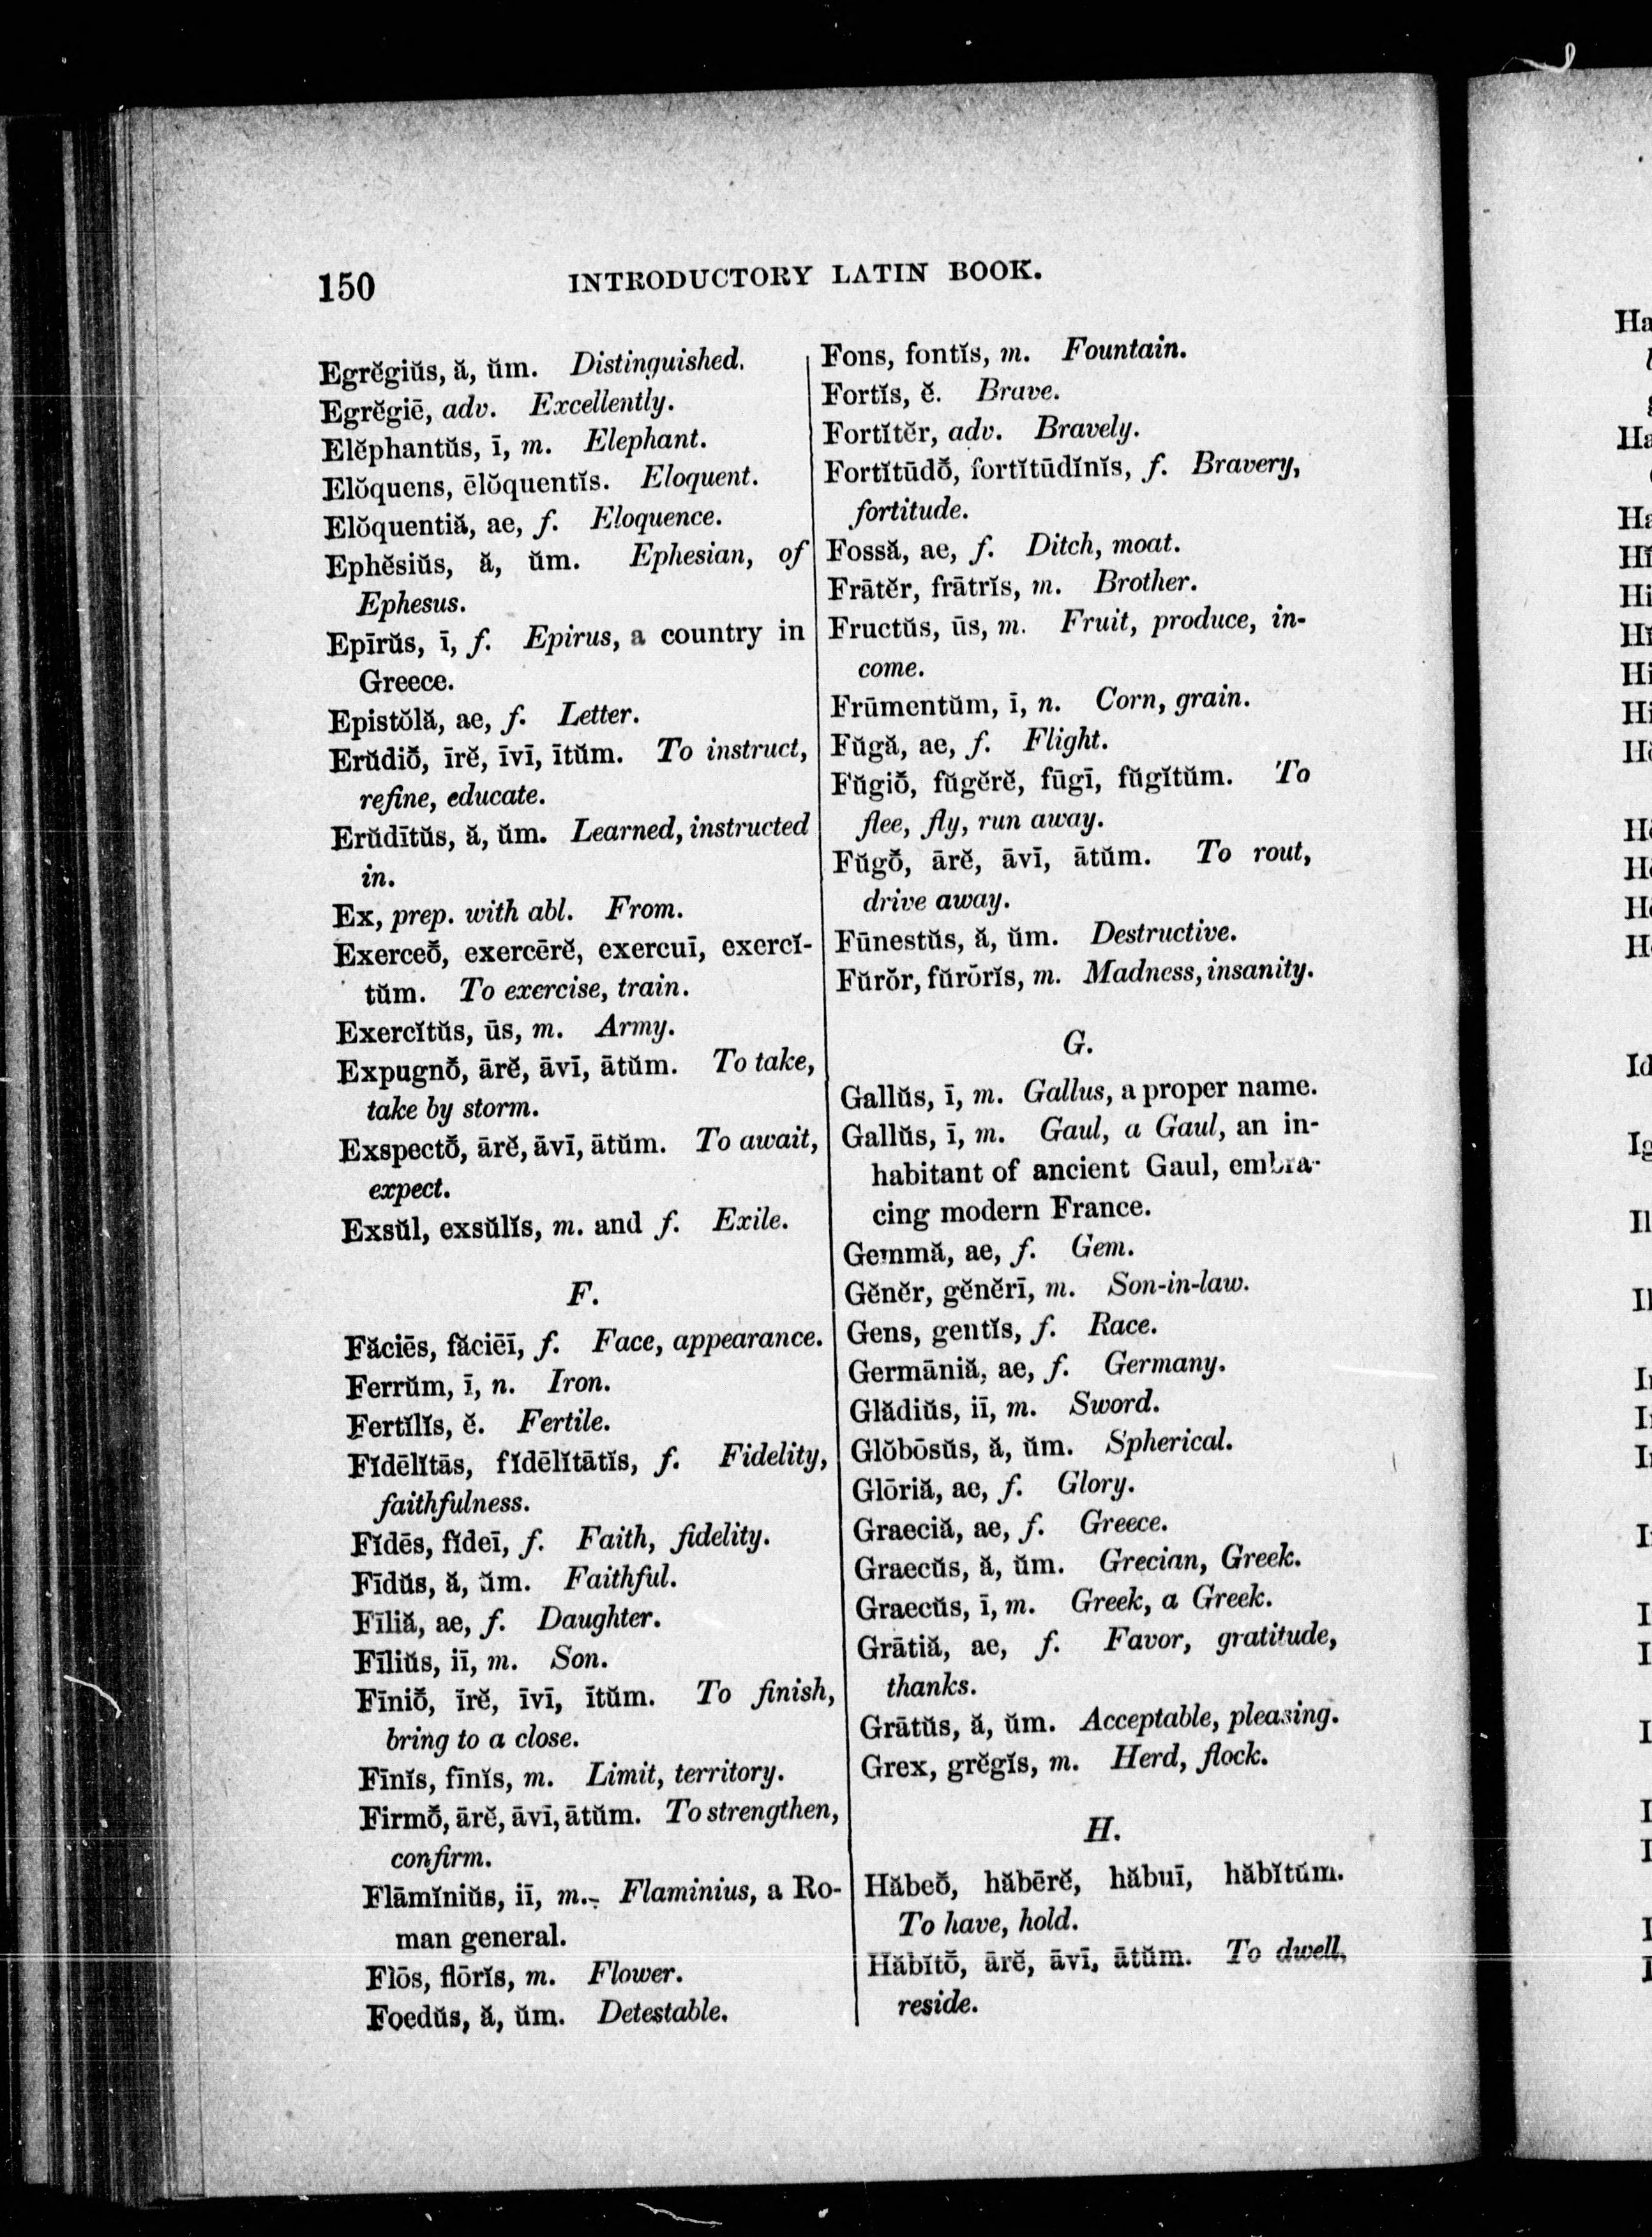 150
INTRODUCTORY LATIN BOOK.
Egrĕgiŭs, ă, ŭm. Distinguished.
Egrĕgiē, adv. Excellently.
Elĕphantŭs, ī, m. Elephant.
Elŏquens, ēlŏquentĭs. Eloquent.
Elŏquentiă, ae, f. Eloquence.
Ephĕsiŭs, ă, ŭm. Ephesian, of
Ephesus.
Epīrŭs, ī, f. Epirus, a country in
Greece.
Epistŏlă, ae, f. Letter.
Erŭdiō̆, īrĕ, īvī, ītŭm. To instruct,
refine, educate.
Erŭdītŭs, ă, ŭm. Learned, instructed
in.
Ex, prep. with abl. From.
Exerceō̆, exercērĕ, exercuī, exercĭ-
tŭm. To exercise, train.
Exercĭtŭs, ūs, m. Army.
Expugnō̆, ārĕ, āvī, ātŭm. To take,
take by storm.
Exspectō̆, ārĕ, āvī, ātŭm. To await,
expect.
Exsŭl, exsŭlĭs, m. and f. Exile.
F.
Făciēs, făciēī, f. Face, appearance.
Ferrŭm, ī, n. Iron.
Fertĭlĭs, ĕ. Fertile.
Fĭdēlĭtās, fĭdēlĭtātĭs, f. Fidelity,
faithfulness.
Fĭdēs, fĭdeī, f. Faith, fidelity.
Fīdŭs, ă, ŭm. Faithful.
Fīliă, ae, f. Daughter.
Fīliŭs, iī, m. Son.
Fīniō̆, īrĕ, īvī, ītŭm. To finish,
bring to a close.
Fīnĭs, fīnĭs, m. Limit, territory.
Firmō̆, ārĕ, āvī, ātŭm. To strengthen,
confirm.
Flāmĭniŭs, iī, m. Flaminius, a Ro-
man general.
Flōs, flōrĭs, m. Flower.
Foedŭs, ă, ŭm. Detestable.
Fons, fontĭs, m. Fountain.
Fortĭs, ĕ. Brave.
Fortĭtĕr, adv. Bravely.
Fortĭtūdō̆, fortĭtūdĭnĭs, f. Bravery,
fortitude.
Fossă, ae, f. Ditch, moat.
Frātĕr, frātrĭs, m. Brother.
Fructŭs, ūs, m. Fruit, produce, in-
come.
Frūmentŭm, ī, n. Corn, grain.
Fŭgă, ae, f. Flight.
Fŭgiō̆, fŭgĕrĕ, fūgī, fŭgĭtŭm. To
flee, fly, run away.
Fŭgō̆, ārĕ, āvī, ātŭm. To rout,
drive away.
Fūnestŭs, ă, ŭm. Destructive.
Fŭrŏr, fŭrōrĭs, m. Madness, insanity.
G.
Gallŭs, ī, m. Gallus, a proper name.
Gallŭs, ī, m. Gaul, a Gaul, an in-
habitant of ancient Gaul, embra-
cing modern France.
Gemmă, ae, f. Gem.
Gĕnĕr, gĕnĕrī, m. Son-in-law.
Gens, gentĭs, f. Race.
Germāniă, ae, f. Germany.
Glădiŭs, iī, m. Sword.
Glŏbōsŭs, ă, ŭm. Spherical.
Glōriă, ae, f. Glory.
Graeciă, ae, f. Greece.
Graecŭs, ă, ŭm. Grecian, Greek.
Graecŭs, ī, m. Greek, a Greek.
Grātiă, ae, f. Favor, gratitude,
thanks.
Grātŭs, ă, ŭm. Acceptable, pleasing.
Grex, grĕgĭs, m. Herd, flock.
H.
Hăbeō̆, hăbērĕ, hăbuī, hăbĭtŭm.
To have, hold.
Hăbĭtō̆, ārĕ, āvī, ātŭm. To dwell,
reside.